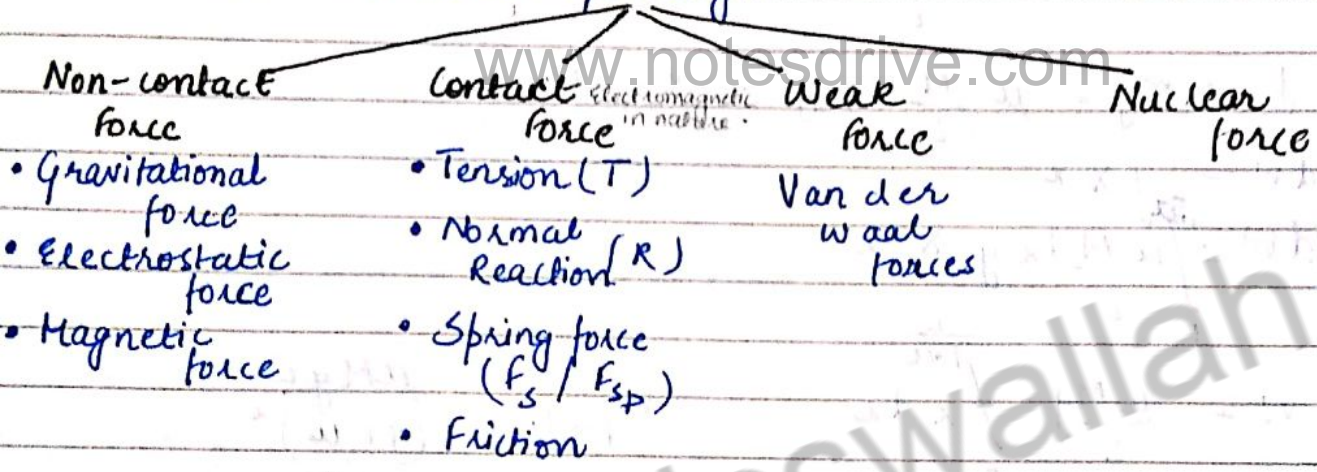 www.notesdrive.com
Non-contact
force
• Gravitational
force
• Electrostatic
force
• Magnetic
force
Contact Electromagnetic
force in nature.
• Tension (T)
• Normal
Reaction (R)
• Spring force
(Fs / Fsp)
• Friction
Weak
force
Van der
waal
forces
Nuclear
force